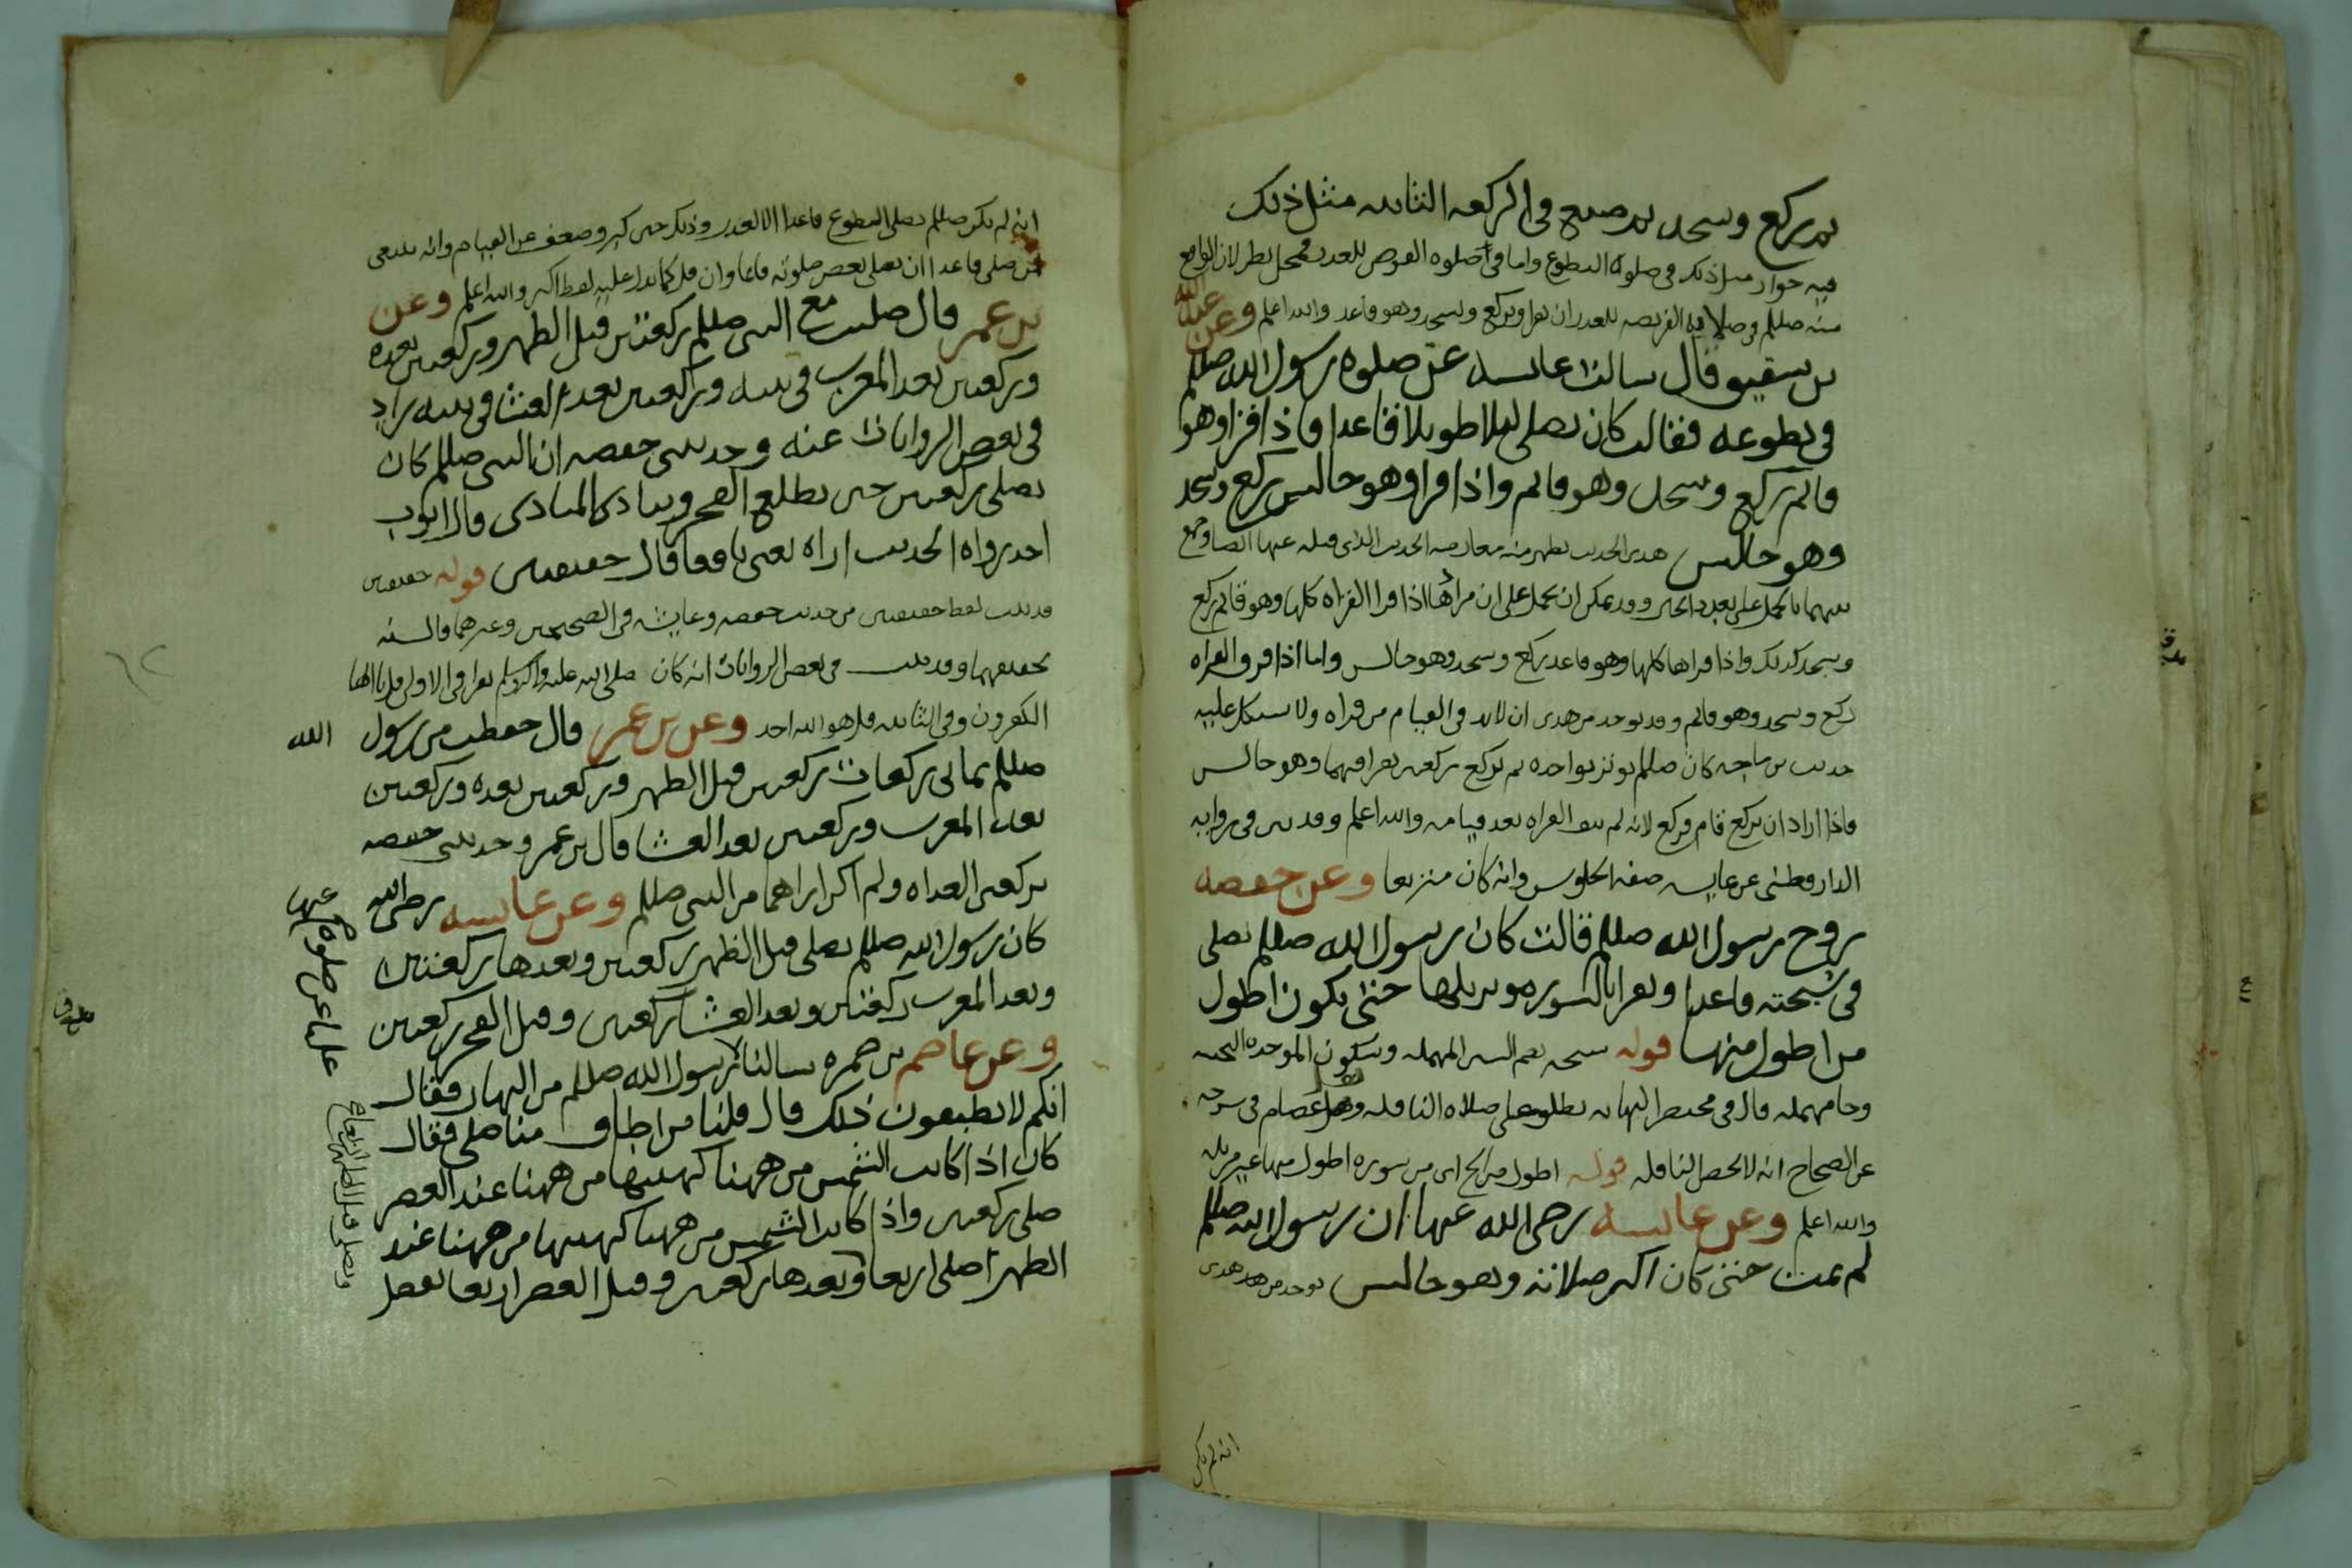 ثم يركع وسجد ثم صنع في الركعه الثانيه مثل ذلك
فيه جواز مثل ذلك في صلوة التطوع واما في صلوه الفرض للعذر فمحل نظر لان الواقع
منه صللم وصلاته الفريضه للعذر ان يقرا ويركع ويسجد وهو قاعد والله اعلم وعن عبدالله
بن شقيق قال سالت عايشه عن صلوه رسول الله صللم
في تطوعه فقالت كان يصلي ليلا طويلا قاعدا فاذا قرا وهو
قائم ركع وسجد وهو قائم واذا قرا وهو جالس ركع وسجد
وهو جالس هذى الحديث يظهر منه معارضه الحديث الذي قبله عنها ايضا وجمع
بينهما بالحمل على تعدد الخبر وقد يمكن ان يحمل على ان مرادها اذا قرا القراه كلها وهو قائم ركع
وسجد كذلك واذا قراها كلها وهو قاعد ركع وسجد وهو جالس واما اذا فرق القراه
ركع وسجد وهو قائم وقد يوخذ من هذى ان لابد في القيام من قراه ولا يشكل عليه
حديث بن ماجه كان صللم يوتر بواحده ثم يركع ركعتين يقرا فيهما وهو جالس
فاذا اراد ان يركع قام فركع لانه لم ينف القراه بعد قيامه والله اعلم وقد بين في روايه
الدارقطني عن عايشه صفه الجلوس وانه كان متربعا وعن حفصه
زوج رسول الله صللم قالت كان رسول الله صللم يصلي
في سبحته قاعدا ويقرا بالسوره ويرتلها حتى يكون اطول
من اطول منها قوله سبحه بضم السين المهمله وسكون الموحده التحتيه
وحا مهمله قال في مختصر النهايه يطلق على صلاه النافله ونقل عصام في شرحه
عن الصحاح انه لا يختص النافله قوله اطول من الخ اى من سوره اطول منها غير مرتله
والله اعلم وعن عايشه رضى الله عنها ان رسول الله صللم
لم يمت حتى كان اكثر صلاته وهو جالس يوخذ من هذى
انه لم يكن
انه لم يكن صللم يصلي التطوع قاعدا الا لعذر وذلك حين كبر وضعف عن القيام وانه ينبغي
لمن صلى قاعدا ان يصلي بعض صلوته قائما وان قل كما يدل عليه لفظ اكثر والله اعلم وعن
بن عمر قال صليت مع النبي صللم ركعتين قبل الظهر وركعتين بعده
وركعتين بعد المغرب في بيته وركعتين بعد العشا في بيته زاد
في بعض الروايات عنه وحدثتني حفصه ان النبي صللم كان
يصلي ركعتين حين يطلع الفجر وينادى المنادى قال ايوب
احد رواه الحديث اراه يعني نافعا قال خفيفتين قوله خفيفتين
قد ثبت لفظ خفيفتين من حديث حفصه وعايشه في الصحيحين وغيرهما فالسنه
تخفيفهما وقد ثبت في بعض الروايات انه كان صلى الله عليه واله وسلم يقرا في الاولى قل يا ايها
الكفرون وفي الثانيه قل هو الله احد وعن بن عمر قال حفظت من رسول الله
صللم ثماني ركعات ركعتين قبل الظهر وركعتين بعده وركعتين
بعد المغرب وركعتين بعد العشا قال بن عمر وحدثتني حفصه
بركعتي الغداه ولم اكن اراهما من النبي صللم وعن عايشه رضى الله عنها
كان رسول الله صللم يصلي قبل الظهر ركعتين وبعدها ركعتين
وبعد المغرب ركعتين وبعد العشا ركعتين وقبل الفجر ركعتين
وعن عاصم بن ضمره سالنا رسول الله صللم من النهار فقال
انكم لا تطيقون ذلك قال قلنا من اطاق منا صلى فقال
كان اذا كانت الشمس من ههنا كهيئتها من ههنا عند العصر
صلى ركعتين واذا كانت الشمس من ههنا كهيئتها من ههنا عند
الظهر صلى اربعا وبعدها ركعتين وقبل العصر اربعا يفصل
عليا عن صلوة
ويصلي قبل الظهر اربعا